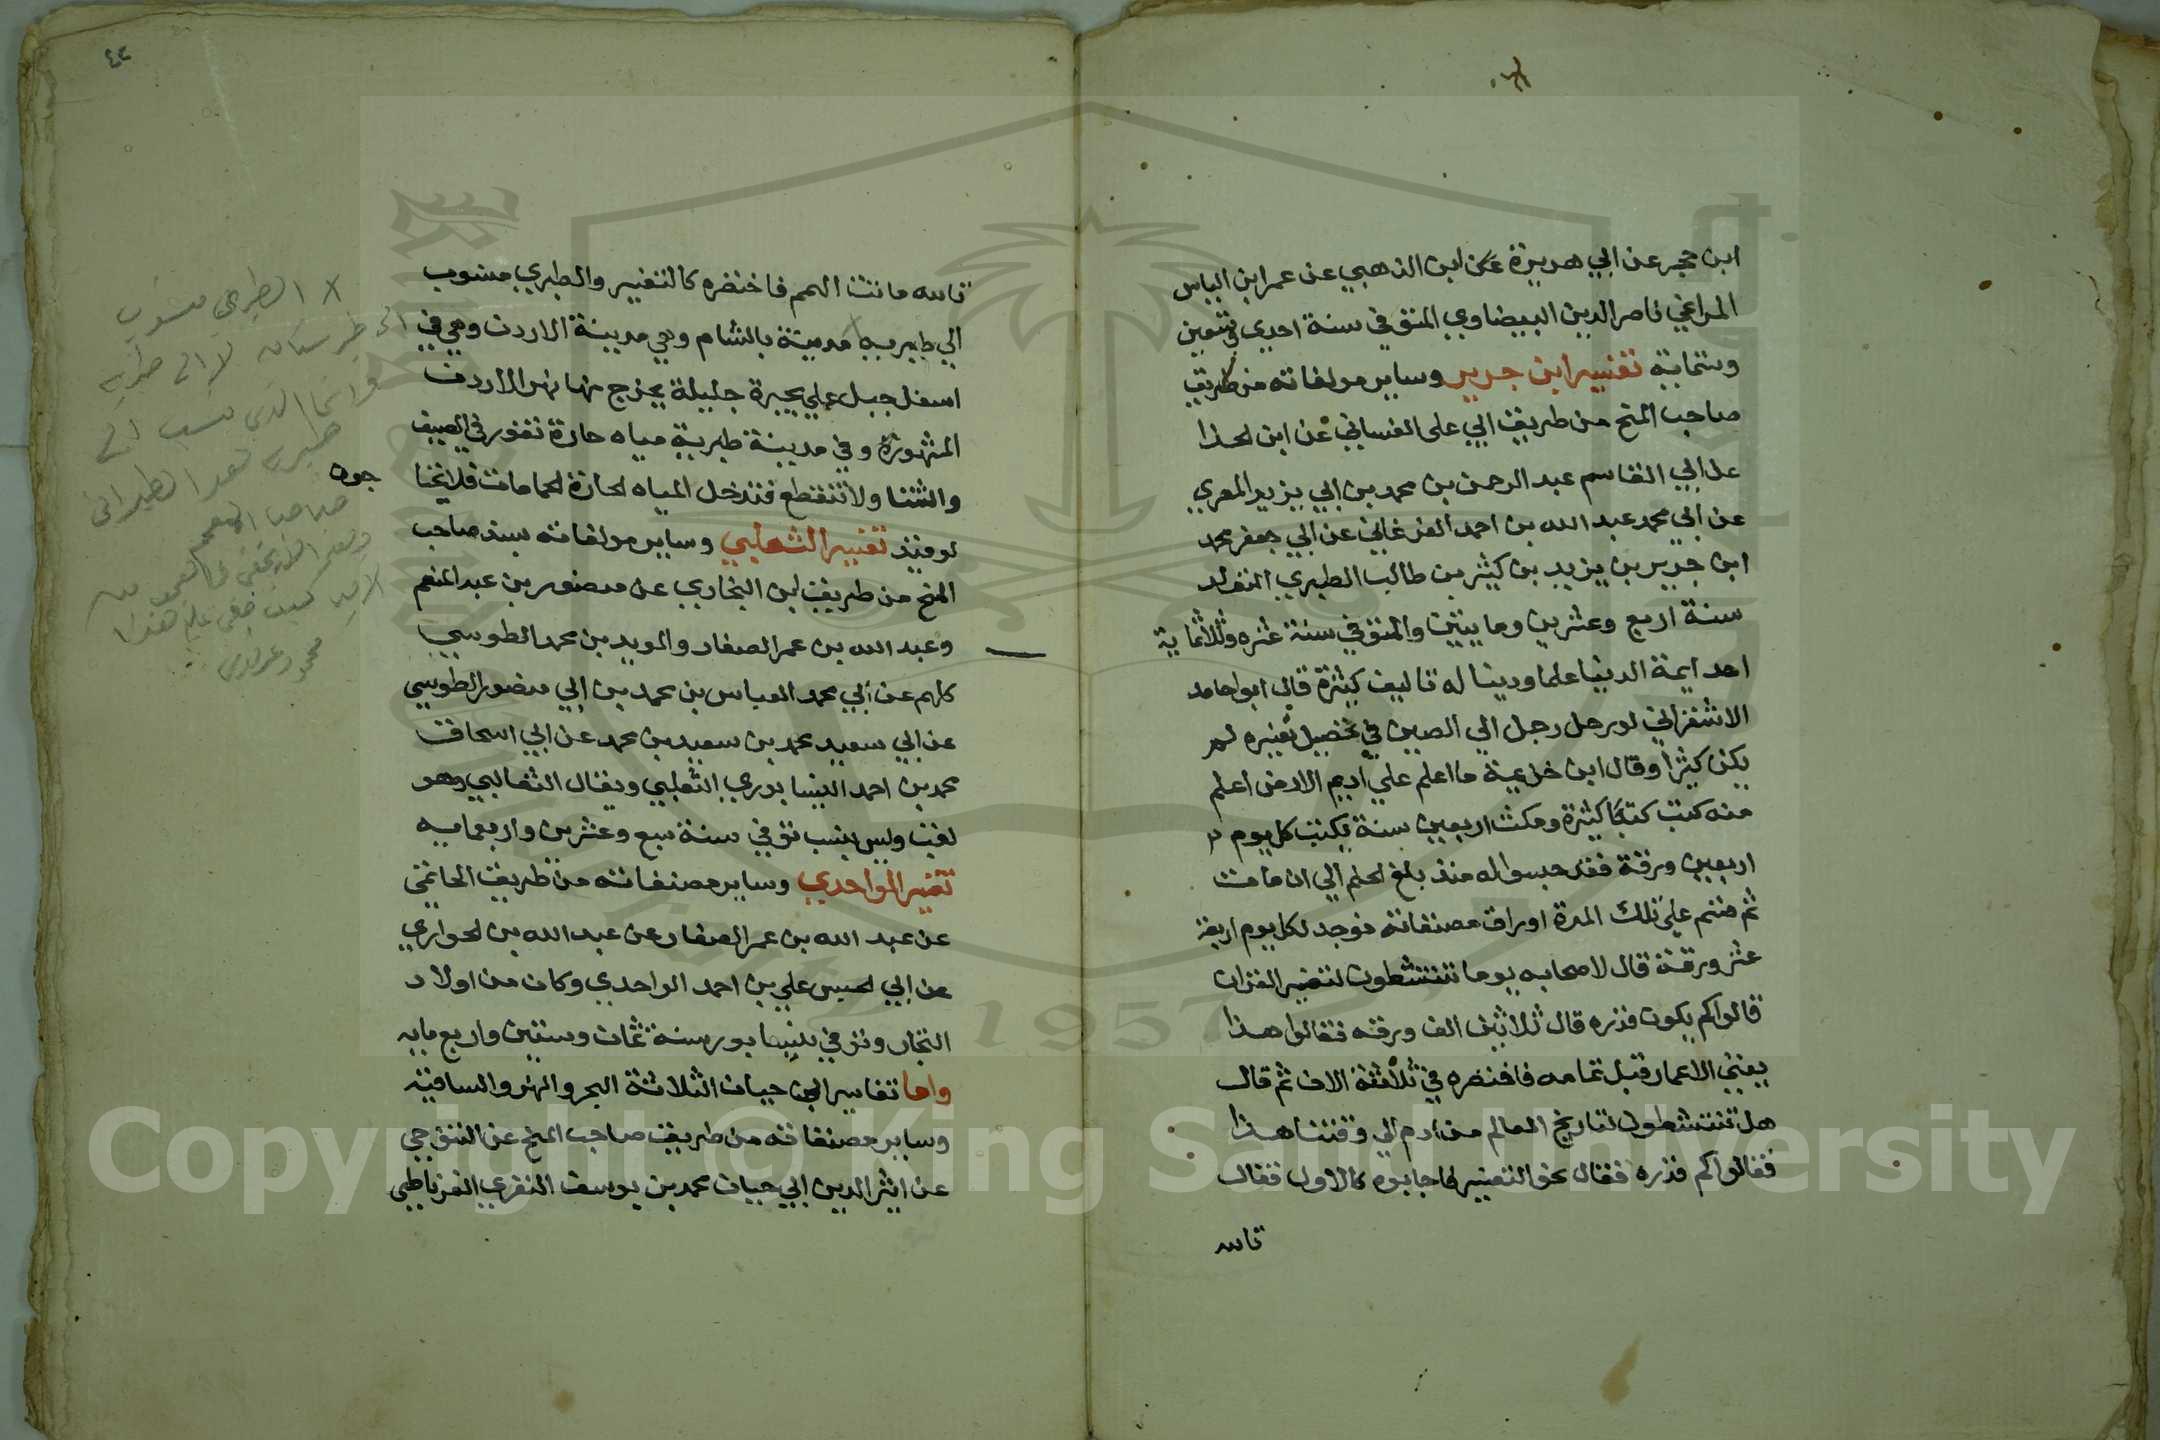 ابن حجر عن ابي هريرة عن ابن الذهبي عن عمر ابن الياس
المراغي ناصر الدين البيضاوي المتوفي سنة احدي وتسعين
وستماية تفسير ابن جرير وساير مولفاته من طريق
صاحب المنح من طريق ابي على الغساني عن ابن الحذا
عن ابي القاسم عبد الرحمن بن محمد بن ابي يزيد المصري
عن ابي محمد عبد الله بن احمد الفرغاني عن ابي جعفر محمد
ابن جرير بن يزيد بن كثير بن طالب الطبري المتولد
سنة اربع وعشرين ومايتين والمتوفي سنة عشره وثلاثماية
احد ايمة الدنيا علما ودينا له تاليف كثيرة قال ابو حامد
الاشفراني لو رحل رجل الي الصين في تحصيل تفسيره لم
يكن كثيرا وقال ابن خزيمة ما اعلم علي اديم الارض اعلم
منه كتب كتبا كثيرة ومكث اربعين سنة يكتب كل يوم
اربعين ورقة فقد حسبوا له منذ بلغ الحلم الي ان مات
ثم قسم علي تلك المدة اوراق مصنفاته فوجد لكل يوم اربعة
عشر ورقة قال لاصحابه يوما تنتشطون لتفسير القران
قالوا كم يكون قدره قال ثلاثين الف ورقه فقالوا هذا
يفني الاعمار قبل تمامه فاختصره في ثلاثة الاف ثم قال
هل تنتشطون لتاريخ العالم من ادم الي وقتنا هذا
فقالوا كم قدره فقال نحو التفسير فاجابوه كالاول فقال
تالله
٤٣
تالله ماتت الهمم فاختصره كالتفسير والطبري منسوب
الي طبريه مدينة بالشام وهي مدينة الاردن وهي في
اسفل جبل علي بحيرة جليلة يخرج منها نهر الاردن
المشهورة وفي مدينة طبرية مياه حارة تفور في الصيف
والشتا ولا تنقطع فتدخل المياه الحارة الحمامات فلا يحتا
جون
لوقيد تفسير الثعلبي وساير مولفاته بسند صاحب
المنح من طريق ابن البخاري عن منصور بن عبد المنعم
وعبد الله بن عمر الصفار والمويد بن محمد الطوسي
كلهم عن ابي محمد العباس بن محمد بن ابي منصور الطوسي
عن ابي سعيد محمد بن سعيد بن محمد عن ابي اسحاق
محمد بن احمد النيسابوري الثعلبي ويقال الثعالبي وهو
لقب وليس بنسب توفي سنة سبع وعشرين واربعمايه
تفسير الواحدي وساير مصنفاته من طريق الحاتمي
عن عبد الله بن عمر الصفار عن عبد الله بن الحواري
عن ابي الحسن علي بن احمد الواحدي وكان من اولاد
التجار وتوفي بنيسابور سنة ثمان وستين واربع مايه
واما تفاسير ابي حيان الثلاثة البحر والنهر والساقية
وساير مصنفاته من طريق صاحب المنح عن التنوخي
عن اثير الدين ابي حيان محمد بن يوسف النفزي الغرناطي
الطبري منسوب
الى طبرستان لا الى طبرية
وانما الذي ينسب الى
طبرية هو الطبراني
صاحب المعجم
Copyright © King Saud University
1957